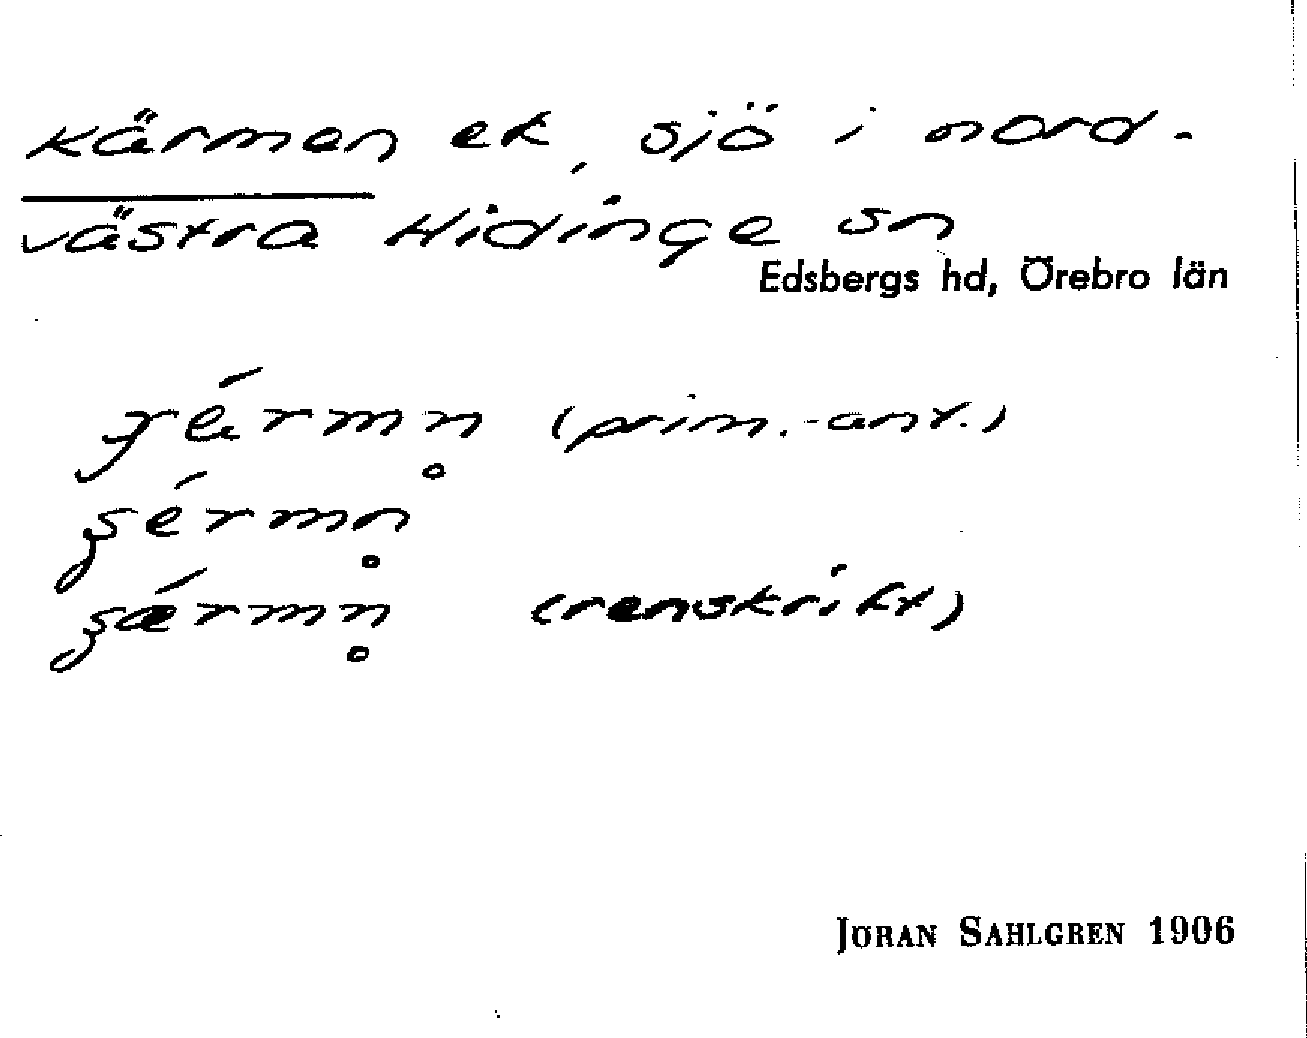 Kärmen ek, sjö i nord-
västra Hidinge sn
Edsbergs hd, Örebro län
(prim.-ant.)
(renskrift)
JÖRAN SAHLGREN 1906